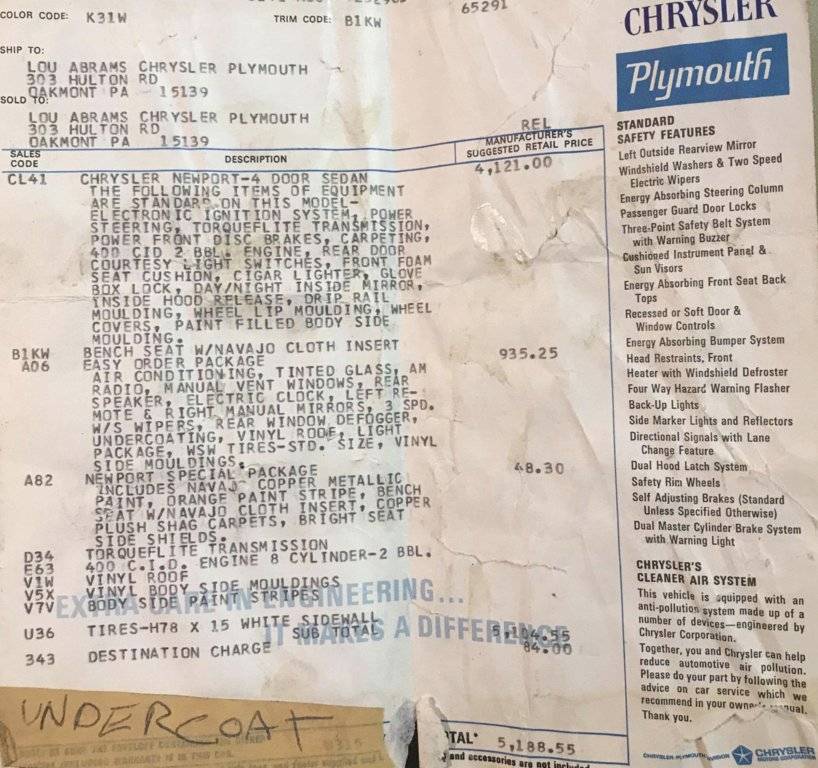 65291
COLOR CODE: K31W TRIM CODE: B1KW
SHIP TO:
LOU ABRAMS CHRYSLER PLYMOUTH
303 HULTON RD
OAKMONT PA 15139
SOLD TO:
LOU ABRAMS CHRYSLER PLYMOUTH
303 HULTON RD
OAKMONT PA 15139
REL
SALES CODE DESCRIPTION MANUFACTURER'S SUGGESTED RETAIL PRICE
CL41 CHRYSLER NEWPORT-4 DOOR SEDAN 4,121.00
THE FOLLOWING ITEMS OF EQUIPMENT
ARE STANDARD ON THIS MODEL-
ELECTRONIC IGNITION SYSTEM, POWER
STEERING, TORQUEFLITE TRANSMISSION,
POWER FRONT DISC BRAKES, CARPETING,
400 CID 2 BBL. ENGINE, REAR DOOR
COURTESY LIGHT SWITCHES, FRONT FOAM
SEAT CUSHION, CIGAR LIGHTER, GLOVE
BOX LOCK, DAY/NIGHT INSIDE MIRROR,
INSIDE HOOD RELEASE, DRIP RAIL
MOULDING, WHEEL LIP MOULDING, WHEEL
COVERS, PAINT FILLED BODY SIDE
MOULDING.
B1KW BENCH SEAT W/NAVAJO CLOTH INSERT
A06 EASY ORDER PACKAGE 935.25
AIR CONDITIONING, TINTED GLASS, AM
RADIO, MANUAL VENT WINDOWS, REAR
SPEAKER, ELECTRIC CLOCK, LEFT RE-
MOTE & RIGHT MANUAL MIRRORS, 3 SPD.
W/S WIPERS, REAR WINDOW DEFOGGER,
UNDERCOATING, VINYL ROOF, LIGHT
PACKAGE, WSW TIRES-STD. SIZE, VINYL
SIDE MOULDINGS.
A82 NEWPORT SPECIAL PACKAGE 48.30
INCLUDES NAVAJO COPPER METALLIC
PAINT, ORANGE PAINT STRIPE, BENCH
SEAT W/NAVAJO CLOTH INSERT, COPPER
PLUSH SHAG CARPETS, BRIGHT SEAT
SIDE SHIELDS.
D34 TORQUEFLITE TRANSMISSION
E63 400 C.I.D. ENGINE 8 CYLINDER-2 BBL.
V1W VINYL ROOF
V5X VINYL BODY SIDE MOULDINGS
V7V BODY SIDE PAINT STRIPES
EXTRA CARE IN ENGINEERING...
IT MAKES A DIFFERENCE
U36 TIRES-H78 X 15 WHITE SIDEWALL
SUB TOTAL 5,104.55
343 DESTINATION CHARGE 84.00
UNDERCOAT
TOTAL* 5,188.55
and accessories are not included
CHRYSLER
Plymouth
STANDARD
SAFETY FEATURES
Left Outside Rearview Mirror
Windshield Washers & Two Speed
Electric Wipers
Energy Absorbing Steering Column
Passenger Guard Door Locks
Three-Point Safety Belt System
with Warning Buzzer
Cushioned Instrument Panel &
Sun Visors
Energy Absorbing Front Seat Back
Tops
Recessed or Soft Door &
Window Controls
Energy Absorbing Bumper System
Head Restraints, Front
Heater with Windshield Defroster
Four Way Hazard Warning Flasher
Back-Up Lights
Side Marker Lights and Reflectors
Directional Signals with Lane
Change Feature
Dual Hood Latch System
Safety Rim Wheels
Self Adjusting Brakes (Standard
Unless Specified Otherwise)
Dual Master Cylinder Brake System
with Warning Light
CHRYSLER'S
CLEANER AIR SYSTEM
This vehicle is equipped with an
anti-pollution system made up of a
number of devices—engineered by
Chrysler Corporation.
Together, you and Chrysler can help
reduce automotive air pollution.
Please do your part by following the
advice on car service which we
recommend in your owner's manual.
Thank you.
CHRYSLER-PLYMOUTH DIVISION CHRYSLER
MOTORS CORPORATION